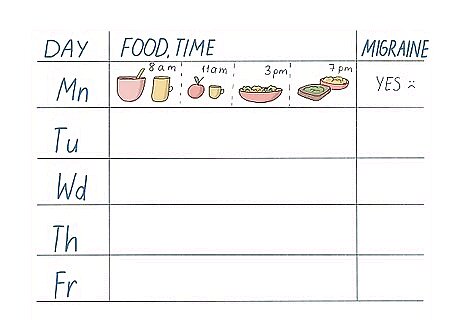 DAY FOOD, TIME MIGRAINE
Mn 8am 11am 3pm 7pm YES :(
Tu
Wd
Th
Fr